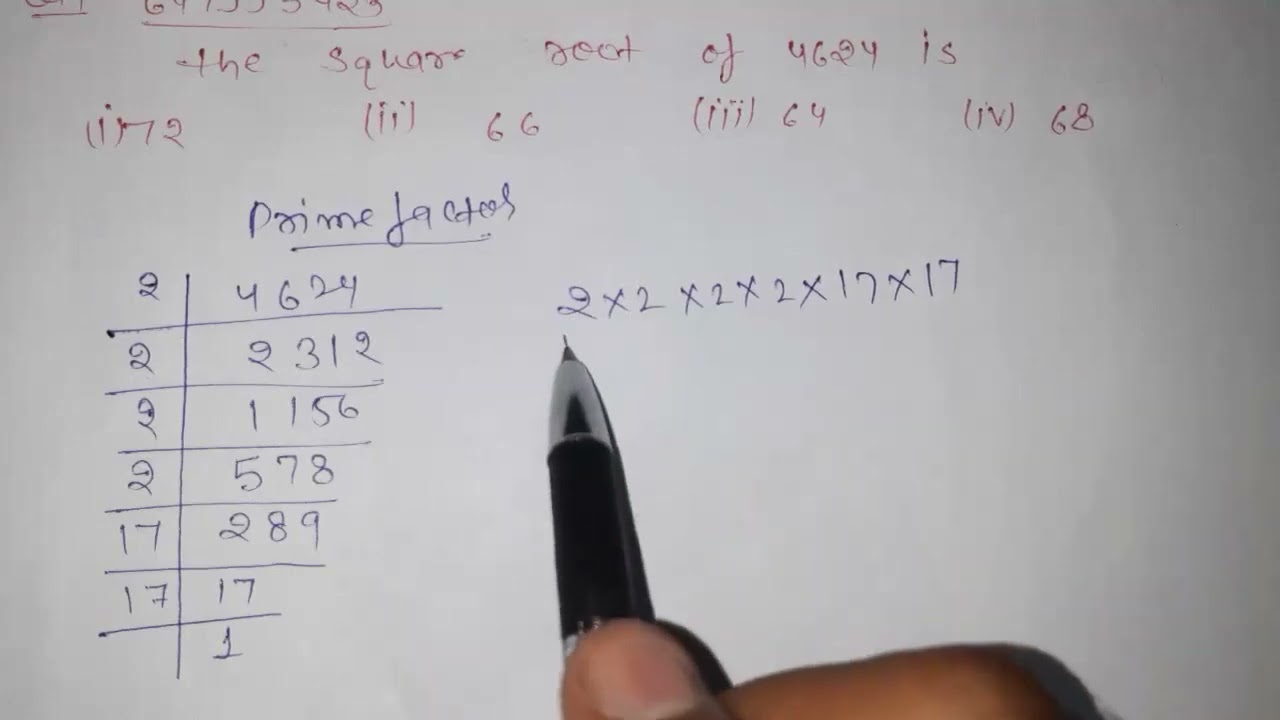 the square root of 4624 is
(i) 72 (ii) 66 (iii) 64 (iv) 68
Prime factors
2 4624
2 2312
2 1156
2 578
17 289
17 17
1
2×2×2×2×17×17